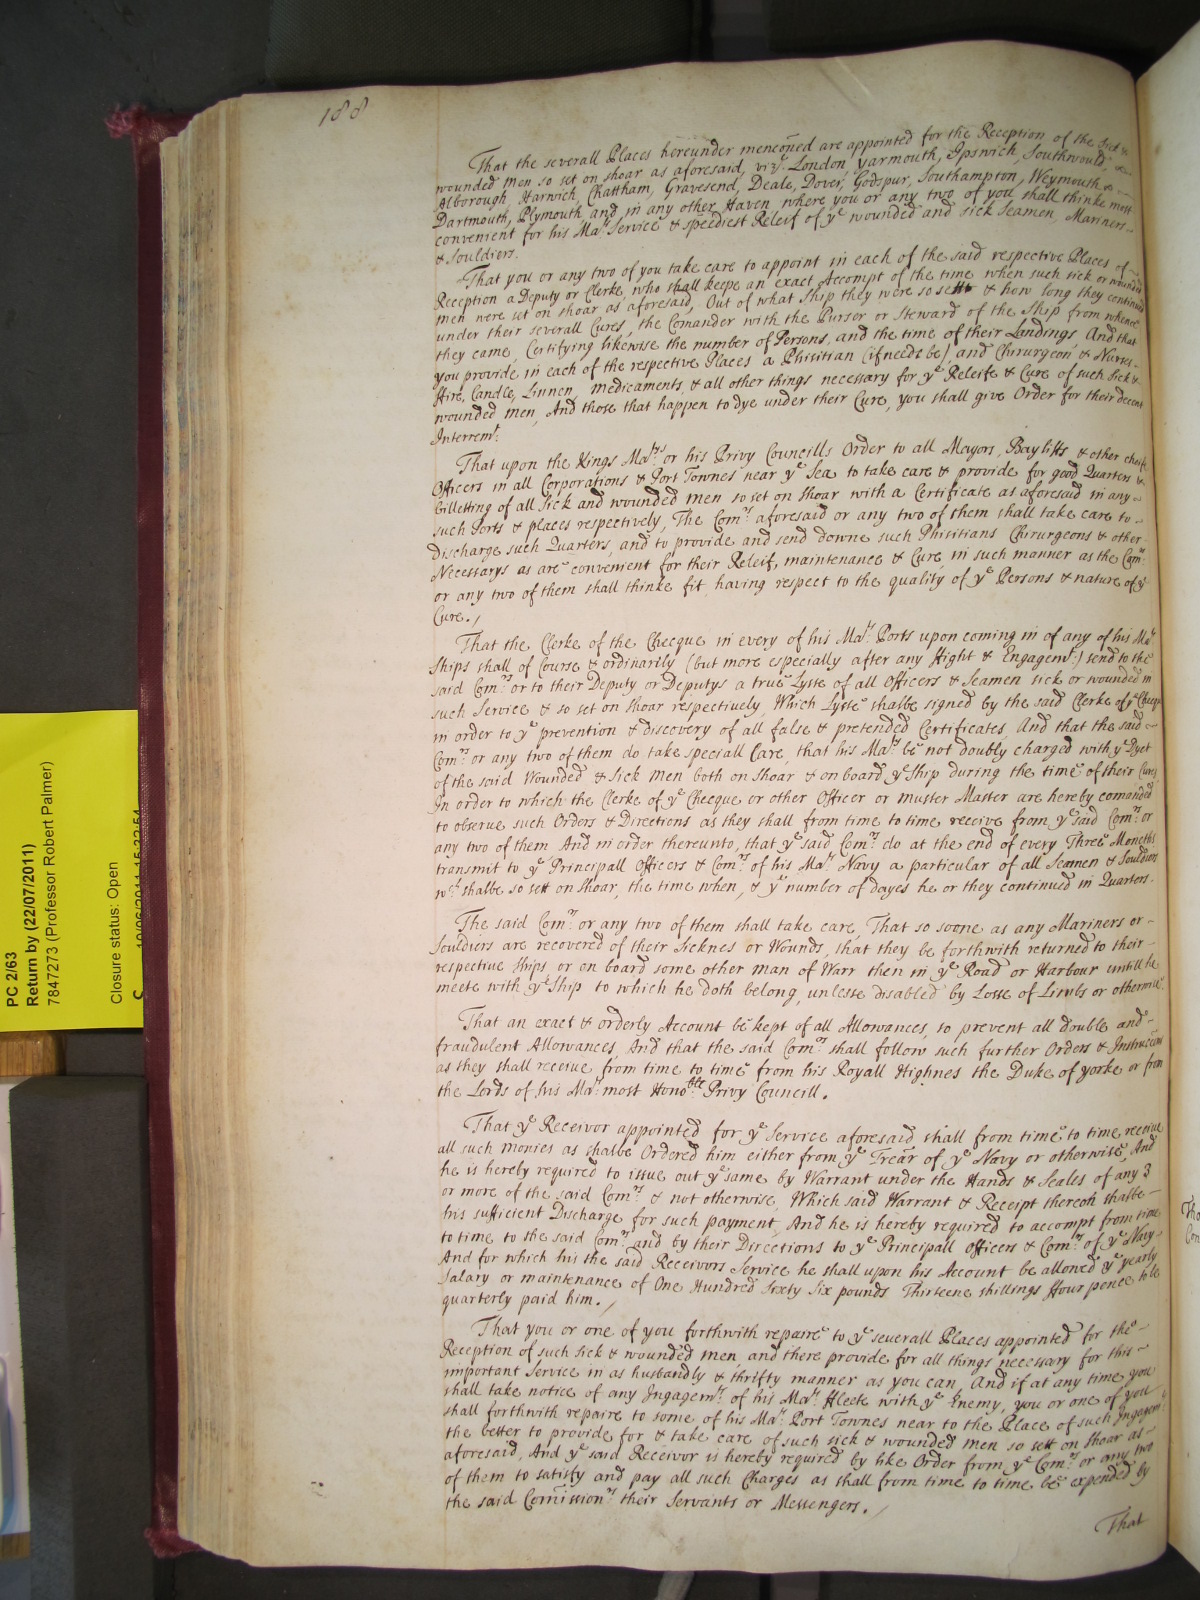 188
That the severall Places hereunder mencōned are appointed for the Reception of the Sick &
wounded men so set on shoar as aforesaid, vizt. London, yarmouth, Ipswich, Southwould,
Alborough, Harwich, Chattham, Gravesend, Deale, Dover, Godspur, Southampton, Weymouth
Dartmouth, Plymouth, and in any other Haven where you or any two of you shall thinke most
convenient for his Mats Service & speediest Releif of ye wounded and sick Seamen, Mariners
& Souldiers.
That you or any two of you take care to appoint in each of the said respective Places of
Reception a Deputy or Clerke, who shall keepe an exact Accompt of the time when such sick or wounded
men were set on shoar as aforesaid, Out of what Ship they were so sett & how long they continued
under their severall Cures, the Comander with the Purser or Steward of the Ship from whence
they came, Certifying likewise the number of Persons, and the time of their Landings, And that
you provide in each of the respective Places a Phisitian (if need be) and Chirurgeon & Nurses,
Fire, Candle, Linnen, medicaments & all other things necessary for ye Releife & Cure of such sick &
wounded men, And those that happen to dye under their Cure, you shall give Order for their decent
Interremt.
That upon the Kings Mats or his Privy Councills Order to all Mayors, Bayliffs & other cheife
Officers in all Corporations & Port Townes near ye Sea to take care & provide for good Quarters &
billetting of all Sick and wounded men so set on shoar with a Certificate as aforesaid in any
such Ports & places respectively, The Comrs aforesaid or any two of them shall take care to
Discharge such Quarters, and to provide and send downe such Phisitians Chirurgeons & other
Necessarys as are convenient for their Releif, maintenance & Cure in such manner as the Comrs
or any two of them shall thinke fit, having respect to the quality of ye Persons & nature of ye
Cure./
That the Clerke of the Checque in every of his Mats Ports upon coming in of any of his Mats
Ships shall of Course & ordinarily (but more especially after any Fight & Engagemt:) send to the
said Comrs or to their Deputy or Deputys a true Lyste of all Officers & Seamen sick or wounded in
such Service & so set on shoar respectively Which Lyste shalbe signed by the said Clerke of ye Checque
in order to ye prevention & discovery of all false & pretended Certificates, And that the said
Comrs or any two of them do take speciall Care, that his Mats be not doubly charged with ye Dyet
of the said Wounded & Sick Men both on shoar & on board ye Ship during the time of their Cures
In order to which the Clerke of ye Checque or other Officer or Muster Master are hereby comanded
to observe such Orders & Directions as they shall from time to time receive from ye said Comrs or
any two of them And in order thereunto, that ye said Comrs do at the end of every Three Moneths
transmit to ye Principall Officers & Comrs of his Mats Navy a particular of all Seamen & Souldiers
wch shalbe so sett on shoar, the time when, & ye number of dayes he or they continued in Quarters.
The said Comrs or any two of them shall take care, That so soone as any Mariners or
Souldiers are recovered of their Sicknes or Wounds, that they be forthwith returned to their
respective Ships, or on board some other man of Warr then in ye Road or Harbour untill he
meete with ye Ship to which he doth belong, unlesse disabled by Losse of Limbs or otherwise.
That an exact & orderly Account be kept of all Allowances, to prevent all double and
fraudulent Allowances, And that the said Comrs shall follow such further Orders & Instruccōns
as they shall receive from time to time from his Royall Highnes the Duke of yorke or from
the Lords of his Mats most Honoble Privy Councill.
That ye Receivor appointed for ye Service aforesaid shall from time to time receive
all such monies as shalbe Ordered him either from ye Trear of ye Navy or otherwise, And
he is hereby required to issue out ye same by Warrant under the Hands & Seales of any 3
or more of the said Comrs & not otherwise, Which said Warrant & Receipt thereon shalbe
his sufficient Discharge for such payment, And he is hereby required to accompt from time
to time to the said Comrs and by their Directions to ye Principall officers & Comrs of ye Navy
And for which his the said Receivors Service he shall upon his Account be allowed ye yearly
Salary or maintenance of One Hundred Sixty Six pounds Thirteene shillings ffour pence to be
quarterly paid him./
That you or one of you forthwith repaire to ye severall Places appointed for the
Reception of such sick & wounded men, and there provide for all things necessary for this
important Service in as husbandly & thrifty manner as you can, And if at any time you
shall take notice of any Ingagemt of his Mats Fleete with ye Enemy, you or one of you
shall forthwith repaire to some of his Mats Port Townes near to the Place of such Ingagemt
the better to provide for & take care of such sick & wounded men so sett on shoar as
aforesaid, And ye said Receivor is hereby required by like Order from ye Comrs or any two
of them to satisfy and pay all such Charges as shall from time to time be expended by
the said Comissionrs their Servants or Messengers./
That
PC 2/63
Return by (22/07/2011)
7847273 (Professor Robert Palmer)
Closure status: Open
S 10/06/2011 15:32:54